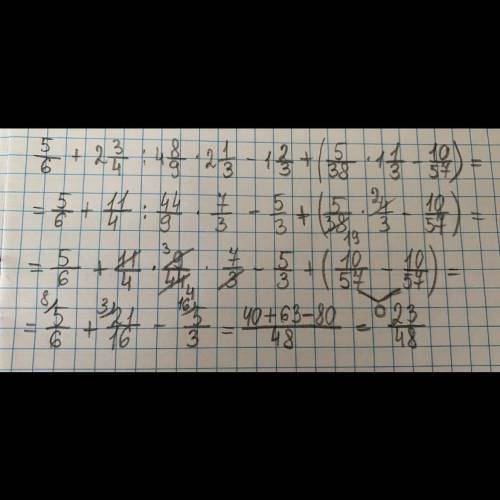 5/6 + 2 3/4 : 4 8/9 · 2 1/3 − 1 2/3 + (5/38 · 1 1/3 − 10/57) =
= 5/6 + 11/4 : 44/9 · 7/3 − 5/3 + (5/38 19 · 2 4/3 − 10/57) =
= 5/6 + 11/4 · 3 9/44 4 · 7/3 − 5/3 + (10/57 − 10/57) =
0
= 8/ 5/6 + 3/ 21/16 − 16/ 5/3 = 40+63−80/48 = 23/48